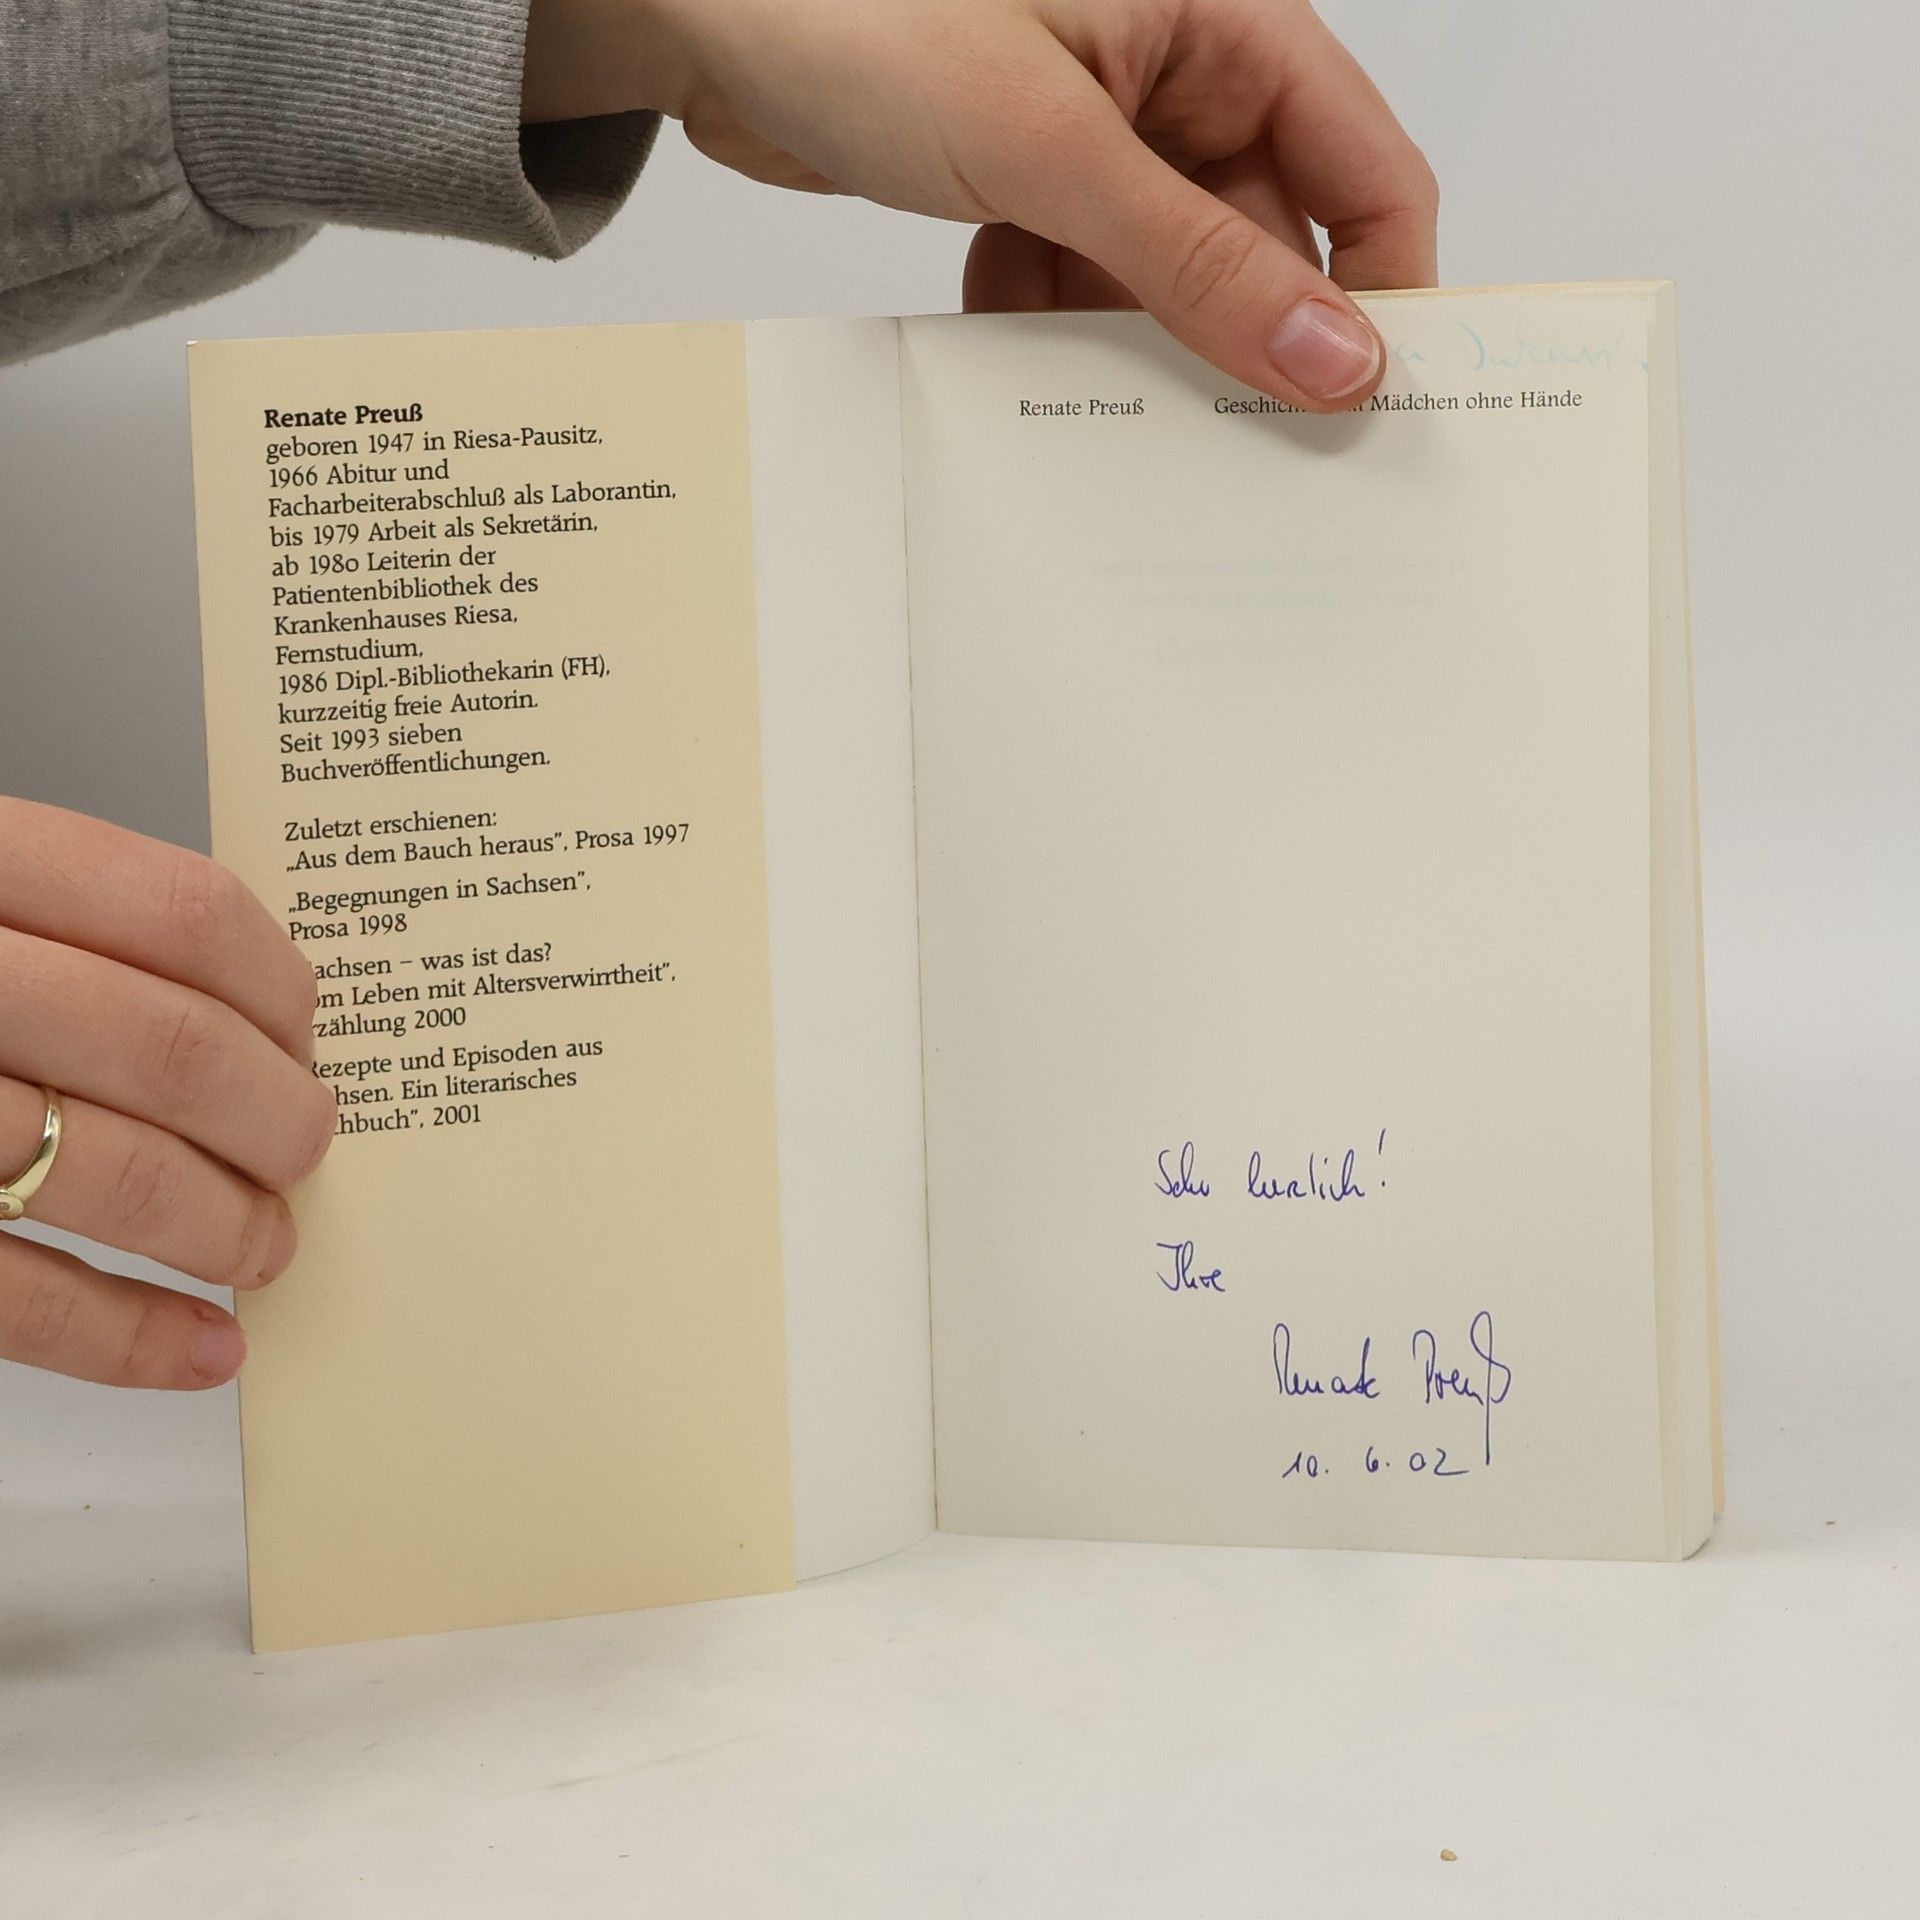 Renate Preuß
geboren 1947 in Riesa-Pausitz,
1966 Abitur und
Facharbeiterabschluß als Laborantin,
bis 1979 Arbeit als Sekretärin,
ab 1980 Leiterin der
Patientenbibliothek des
Krankenhauses Riesa,
Fernstudium,
1986 Dipl.-Bibliothekarin (FH),
kurzzeitig freie Autorin.
Seit 1993 sieben
Buchveröffentlichungen.
Zuletzt erschienen:
„Aus dem Bauch heraus”, Prosa 1997
„Begegnungen in Sachsen”,
Prosa 1998
achsen – was ist das?
om Leben mit Altersverwirrtheit”,
rzählung 2000
Rezepte und Episoden aus
hsen. Ein literarisches
chbuch”, 2001
Renate Preuß Geschich Mädchen ohne Hände
Sehr herzlich!
Ihre
Renate Preuß
10. 6. 02